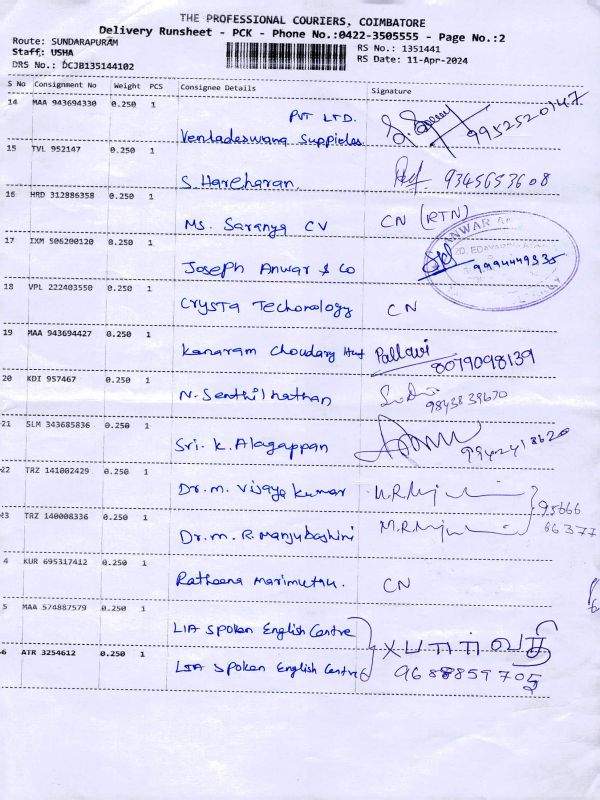 THE PROFESSIONAL COURIERS, COIMBATORE
Delivery Runsheet - PCK - Phone No.:0422-3505555 - Page No.:2
Route: SUNDARAPURAM
RS No.: 1351441
Staff: USHA
RS Date: 11-Apr-2024
DRS No.: DCJB135144102
S No Consignment No Weight PCS Consignee Details Signature
14 MAA 943694330 0.250 1
PVT LTD.
Venkadeswana Suppieles 9952520147
15 TVL 952147 0.250 1
S. Hareharan 9345653608
16 HRD 312886358 0.250 1
Ms. Saranya CV CN (RTN)
17 IXM 506200120 0.250 1
ANWAR
Joseph Anwar & Co 9994449835
18 VPL 222403550 0.250 1
Crysta Techonology CN
19 MAA 943694427 0.250 1
Kanaram Choudary Pallavi
8079098139
20 KDI 957467 0.250 1
N. Senthilnathan
9843839670
21 SLM 343685836 0.250 1
Sri. K. Alagappan 9942418620
22 TRZ 141002429 0.250 1
Dr. m. Vijaya kumar 95666
23 TRZ 140008336 0.250 1 66377
Dr. m. R. Manjubashini
4 KUR 695317412 0.250 1
Ratheena marimutu. CN
5 MAA 574887579 0.250 1
LIA Spoken English Centre
6 ATR 3254612 0.250 1
LIA Spoken English Centre 9688859705